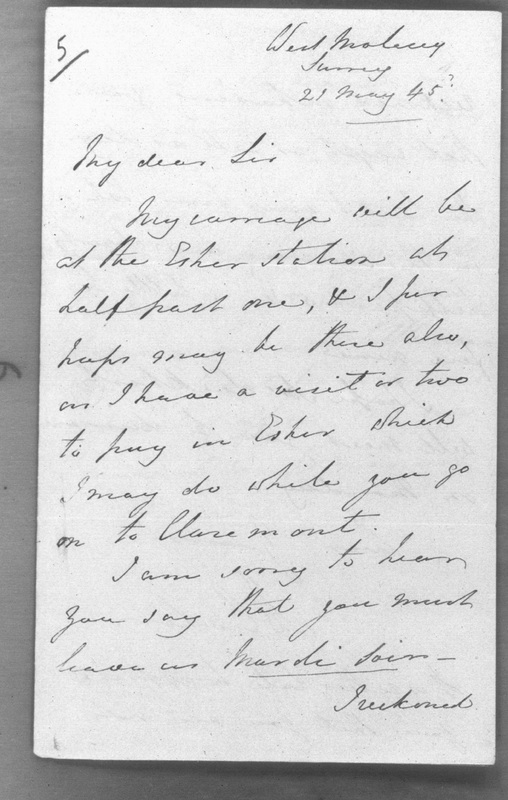 5/
West Molesey
Surrey
21 May 45
My dear Sir
My carriage will be
at the Esher station at
half past one, & I per
haps may be there also,
as I have a visit or two
to pay in Esher which
I may do while you go
on to Claremont.
I am sorry to hear
you say that you must
leave us Mardi soir –
I reckoned